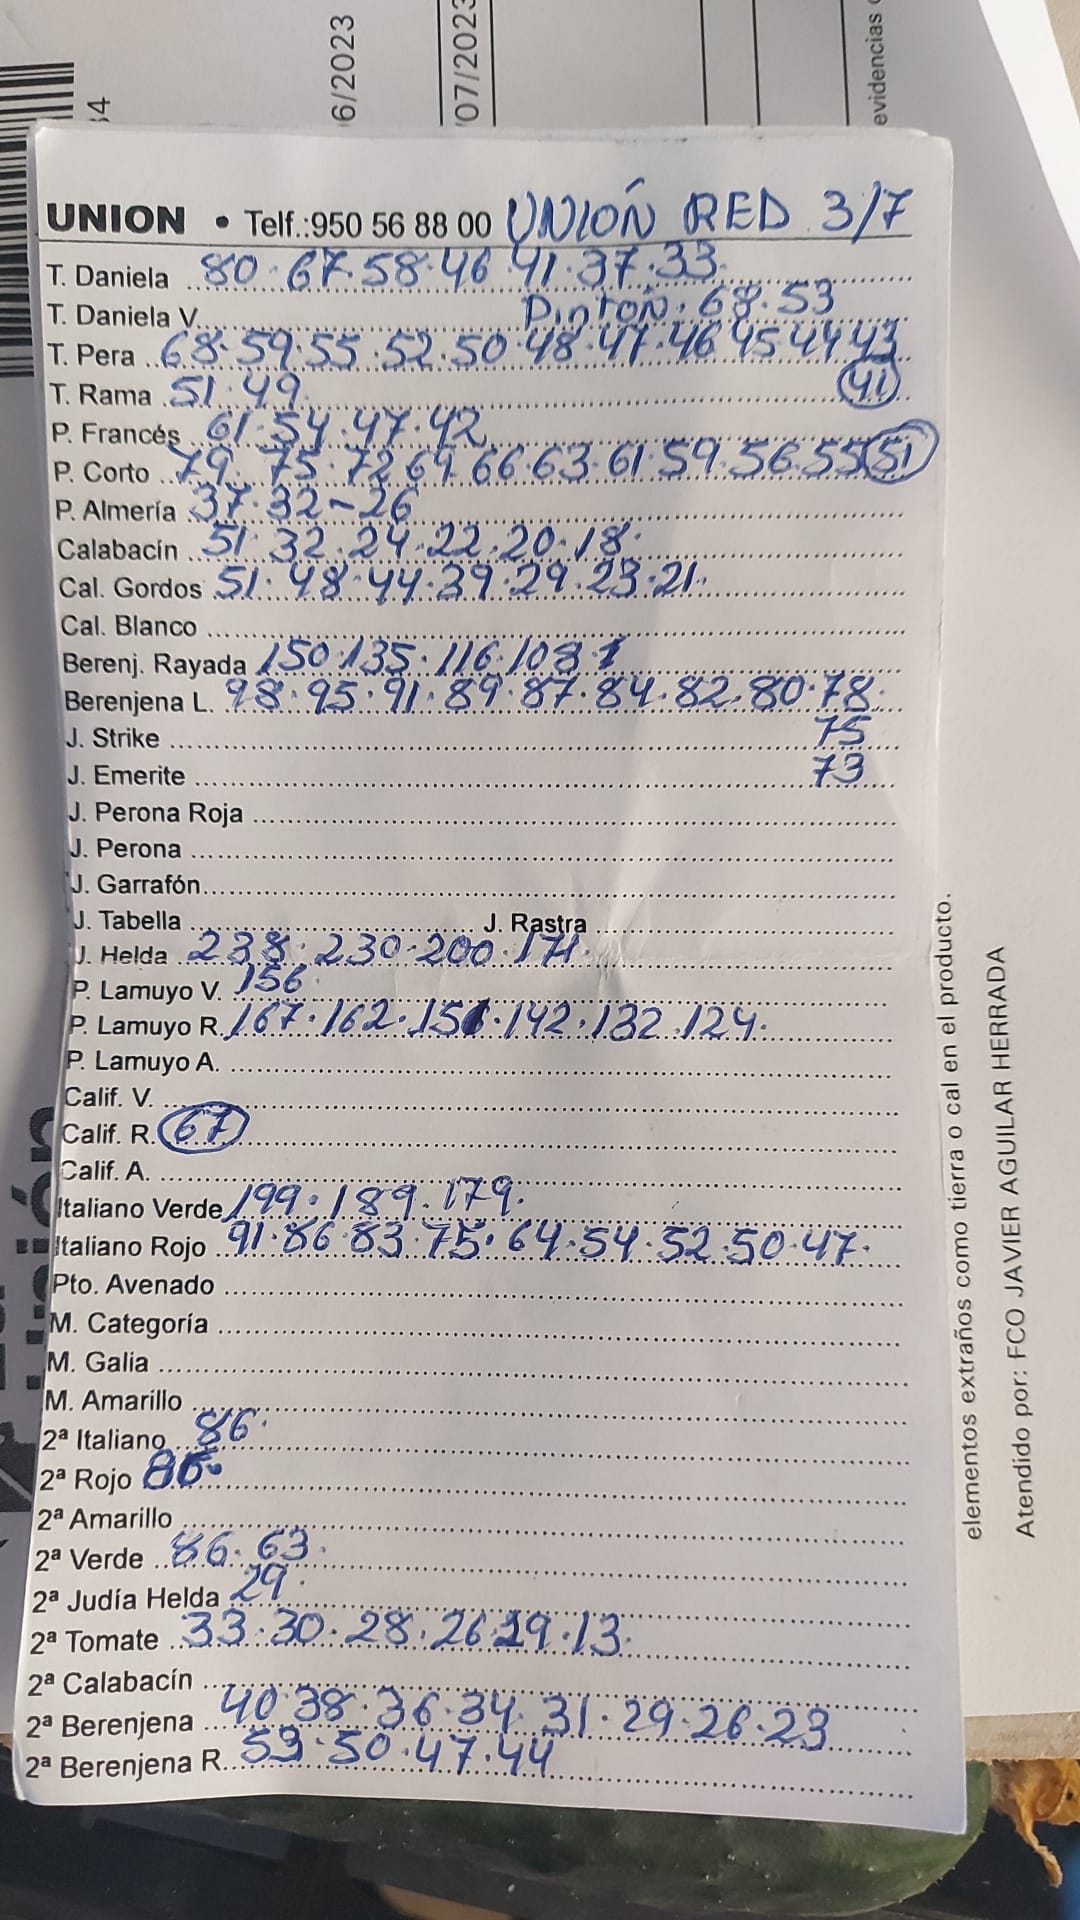 6/2023
/07/2023
evidencias
UNION • Telf.:950 56 88 00 UNIÓN RED 3/7
T. Daniela 80·67·58·46·41·37·33·
T. Daniela V. Pintón: 68·53
T. Pera 68·59·55·52·50·48·47·46 45·44 43
T. Rama 51·49 41
P. Francés 61·54·47·42
P. Corto 79·75·72 69·66·63·61·59·56·55 51
P. Almería 37·32-26
Calabacín 51·32·24·22·20·18·
Cal. Gordos 51·48·44·39·29·23·21·
Cal. Blanco
Berenj. Rayada 150·135·116·108·
Berenjena L. 98·95·91·89·87·84·82·80·78·
J. Strike 75
J. Emerite 73
J. Perona Roja
J. Perona
J. Garrafón
J. Tabella J. Rastra
J. Helda 238·230·200·171·
P. Lamuyo V. 156·
P. Lamuyo R. 167·162·151·142·132·124·
P. Lamuyo A.
Calif. V.
Calif. R. 67
Calif. A.
Italiano Verde 199·189·179·
Italiano Rojo 91·86·83·75·64·54·52·50·47·
Pto. Avenado
M. Categoría
M. Galia
M. Amarillo
2ª Italiano 86·
2ª Rojo
2ª Amarillo
2ª Verde 86·63·
2ª Judía Helda 29·
2ª Tomate 33·30·28·26·19·13·
2ª Calabacín
2ª Berenjena 40·38·36·34·31·29·26·23
2ª Berenjena R. 53·50·47·44
elementos extraños como tierra o cal en el producto.
Atendido por: FCO JAVIER AGUILAR HERRADA